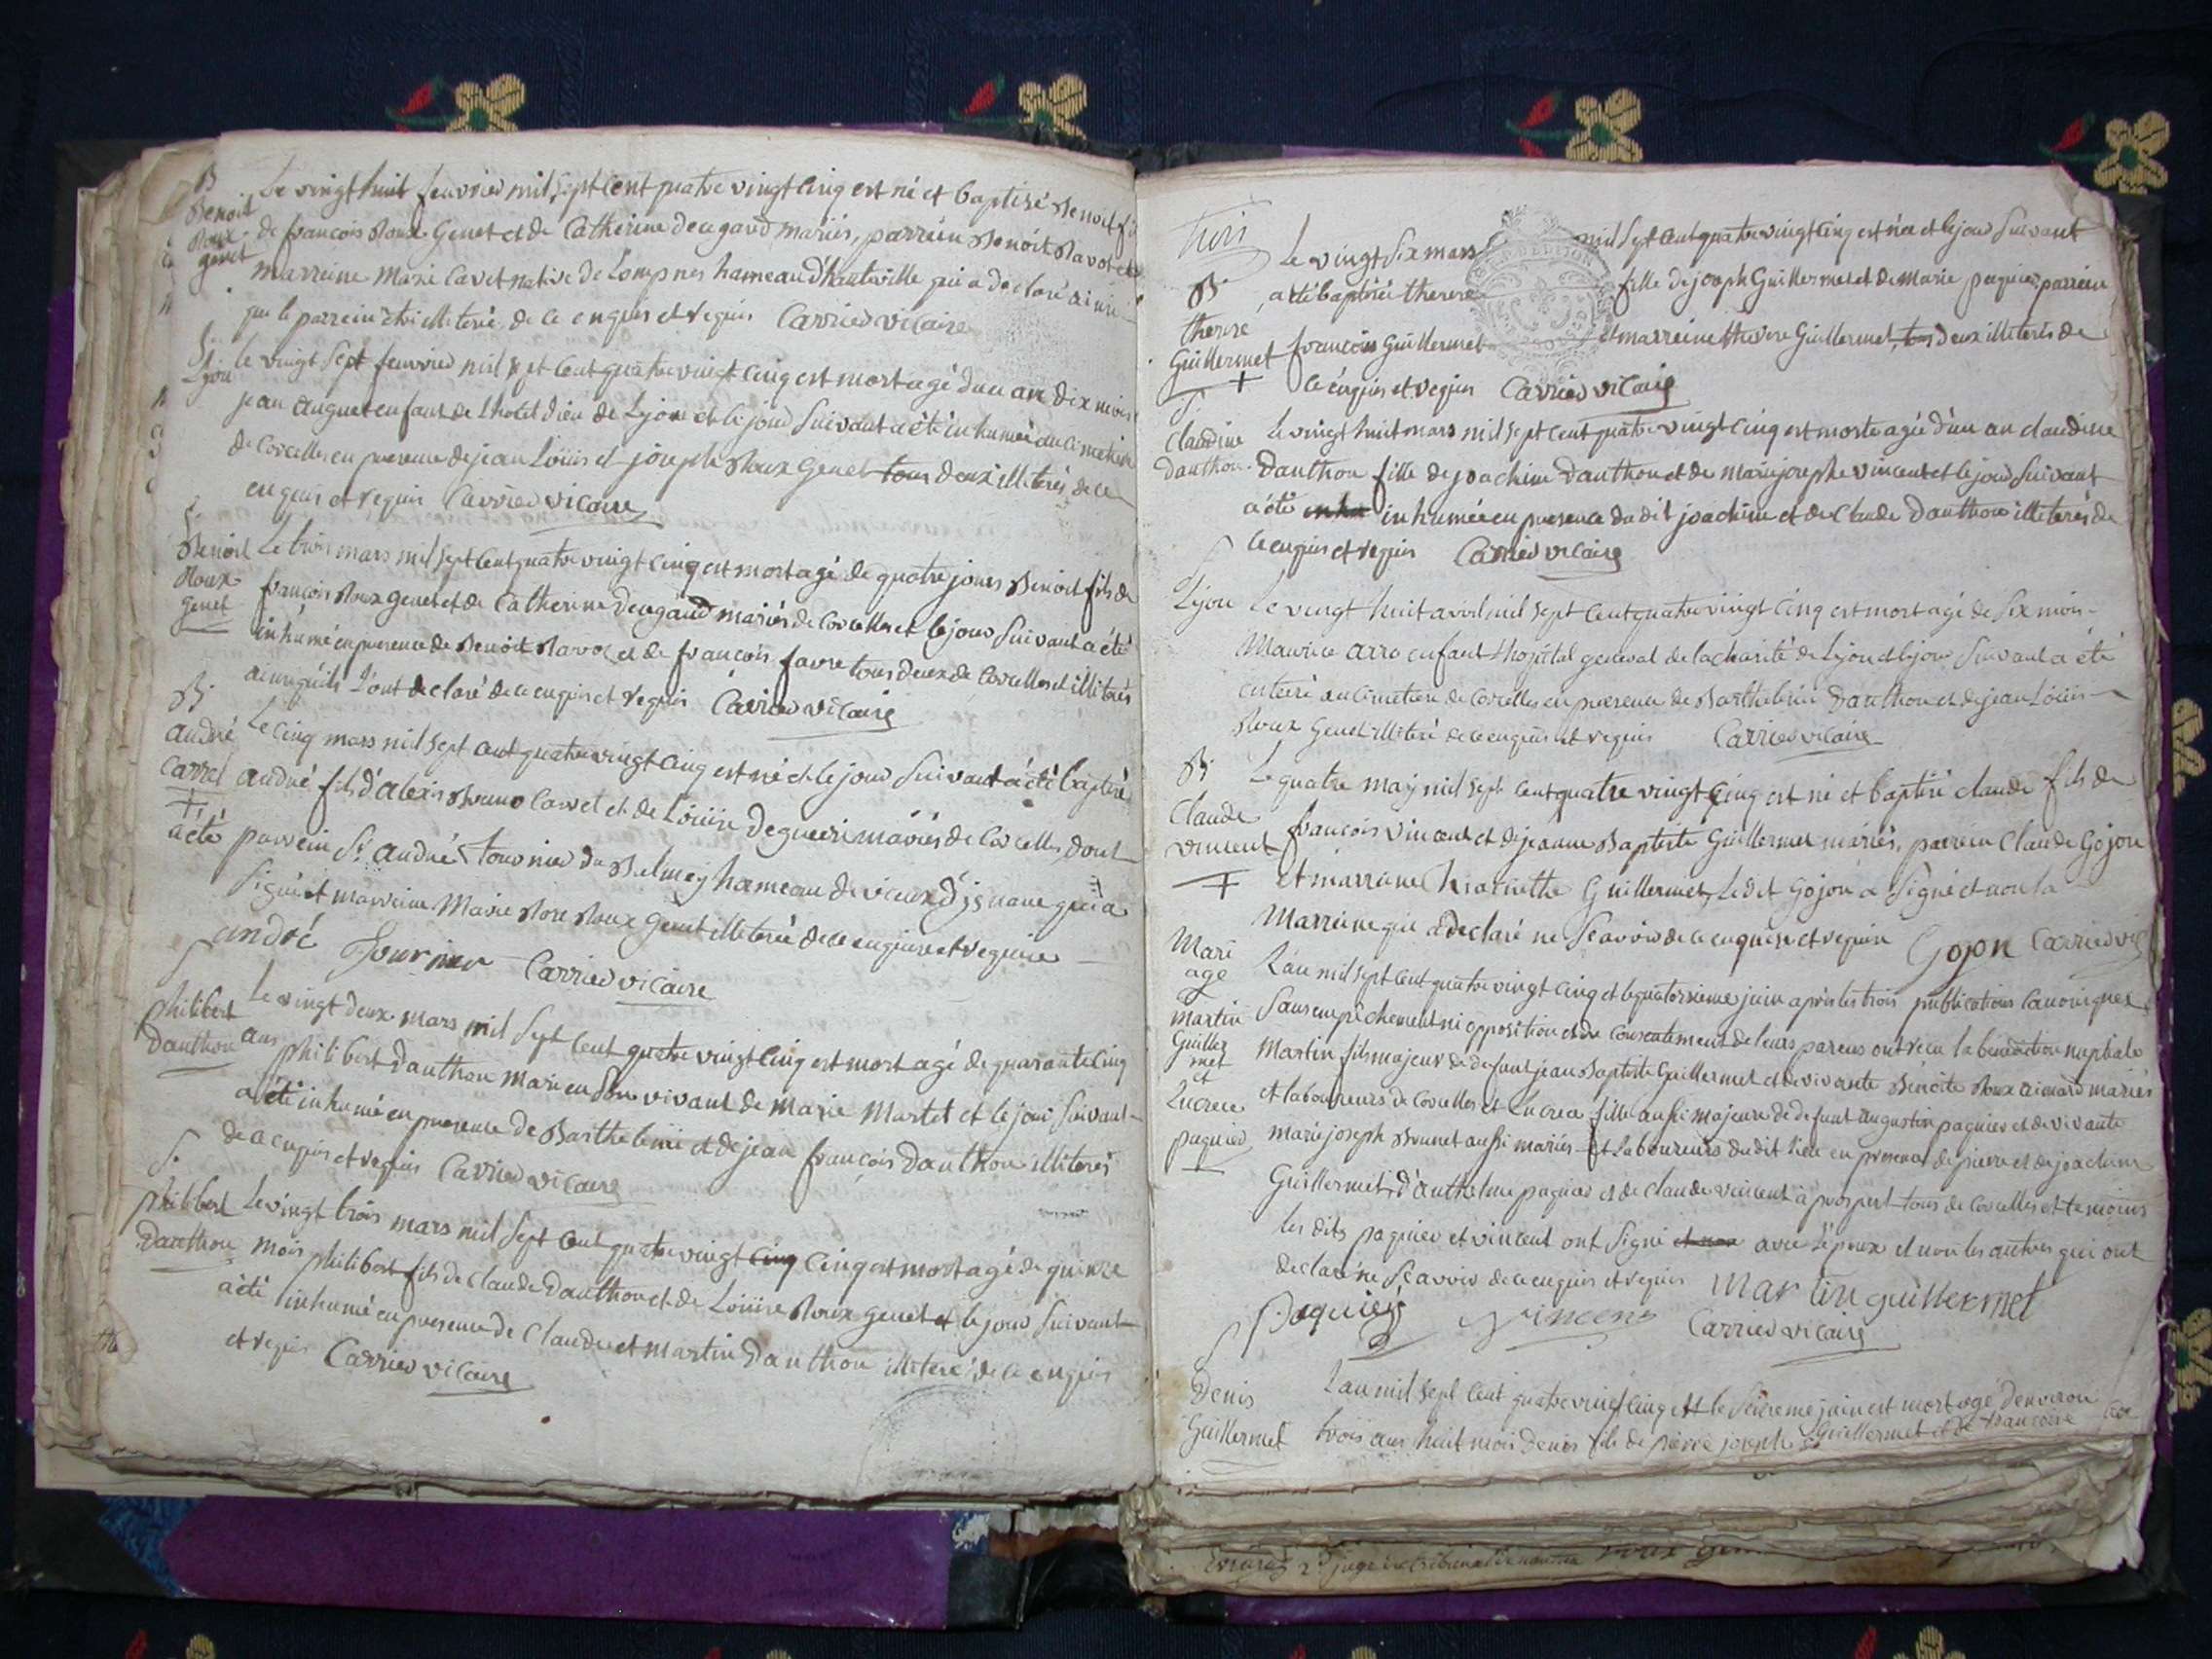 B
Benoit
Roux
genet
Le vingt huit feuvrier mil sept cent quatre vingt cinq est né et baptisé Benoit fils
de francois Roux Genet et de Catherine Deegaud mariés, parrein Benoit Ravot et
marreine Marie Cavet native de Lompnes hameau d'hauteville qui a declaré ainsi
que le parrein être illiteré de ce enquis et requis Carrier vicaire
S.
Lyon
le vingt sept feuvrier mil sept cent quatre vingt cinq est mort agé d'un an dix mois
jean auguet enfant de L'hotel dieu de Lyon et le jour suivant a été inhumé au cimetiere
de Corcelles en presence de jean Loüis et joseph Roux Genet tous deux illiterés de ce
enquis et requis Carrier vicaire
S.
Benoit
Roux
genet
Le trois mars mil sept cent quatre vingt cinq est mort agé de quatre jours Benoit fils de
francois Roux genet et de Catherine Deegaud mariés de Corcelles et le jour suivant a été
inhumé en presence de Benoit Ravot et de francois favre tous deux de Corcelles et illiterés
ainsi qu'ils L'ont declaré de ce enquis et requis Carrier vicaire
B.
andré
Carrel
+
Le cinq mars mil sept cent quatre vingt cinq est né et le jour suivant a été baptisé
andré fils d'alexis Bruno Carrel et de Loüise Degueri mariés de Corcelles dont
a été parrein Sr. andré tournier du Balmey hameau de vieux d'isnave qui a
signé et marreine Marie Rose Roux Genet illiterée de ce enquise et requise
andré Tournier Carrier vicaire
S
philibert
Dauthon
Le vingt deux mars mil sept cent quatre vingt cinq est mort agé de quarante cinq
ans philibert Dauthon mari en son vivant de Marie Martet et le jour suivant
a été inhumé en presence de Barthelémi et de jean françois Dauthon illiterés
de ce enquis et requis Carrier vicaire
S.
philibert
Dauthon
Le vingt trois mars mil sept cent quatre vingt cinq cinq est mort agé de quinze
mois philibert fils de Claude Dauthon et de Loüise Roux genet et le jour suivant
a été inhumé en presence de Claude et martin Dauthon illiteré de ce enquis
et requis Carrier vicaire
trois
B.
therese
Guillermet
+
Le vingt six mars mil sept cent quatre vingt cinq est née et le jour suivant
a été baptisée therese fille de joseph Guillermet et de Marie paquier, parrein
francois Guillermet et marreine therese Guillermet, tous deux illiterés de
ce enquis et requis Carrier vicaire
S.
Claudine
Dauthon
Le vingt huit mars mil sept cent quatre vingt cinq est morte agée d'un an claudine
Dauthon fille de joachim Dauthon et de marie josephe vincent et le jour suivant
a été inhumée en presence du dit joachim et de Claude Dauthon illiterés de
ce enquis et requis Carrier vicaire
S
Lyon
Le vingt huit avril mil sept cent quatre vingt cinq est mort agé de six mois
Maurice arro enfant L'hopital general de la charité de Lyon et le jour suivant a été
enterré au cimetiere de Corcelles en presence de Barthelémi Dauthon et de jean Loüis
Roux Genet illiteré de ce enquis et requis Carrier vicaire
B.
Claude
vincent
+
Le quatre may mil sept cent quatre vingt cinq est né et baptisé claude fils de
francois vincent et de jeanne Baptiste Guillermet mariés, parrein Claude Gojon
et marreine Mariette Guillermet, Ledit Gojon a signé et non la
Marreine qui a declaré ne sçavoir de ce enquise et requise Gojon Carrier vic
Mari
age
martin
Guiller
met
et
Lucrece
paquier
+
L'an mil sept cent quatre vingt cinq et le quatorzieme juin après les trois publications canoniques
sans empêchement ni opposition et du consentement de leurs parens ont reçu la benediction nuptiale
Martin fils majeur de defunt jean Baptiste Guillermet et de vivante Bénoite Roux aimard mariés
et laboureurs de Corcelles et Lucrece fille aussi majeure de defunt augustin paquier et de vivante
marie joseph Brunet aussi mariés et Laboureurs du dit lieu en presence de pierre et de joachim
Guillermet, d'anthelme paquier et de Claude vincent à prospert tous de Corcelles et temoins
les dits paquier et vincent ont signé et non avec L'époux et non les autres qui ont
declaré ne sçavoir de ce enquis et requis Martin guillermet
Paquier Vincent Carrier vicaire
S
Denis
Guillermet
L'an mil sept cent quatre vingt cinq et le seizieme juin est mort agé d'environ
trois ans huit mois Denis fils de pierre joseph Guillermet et de francoise